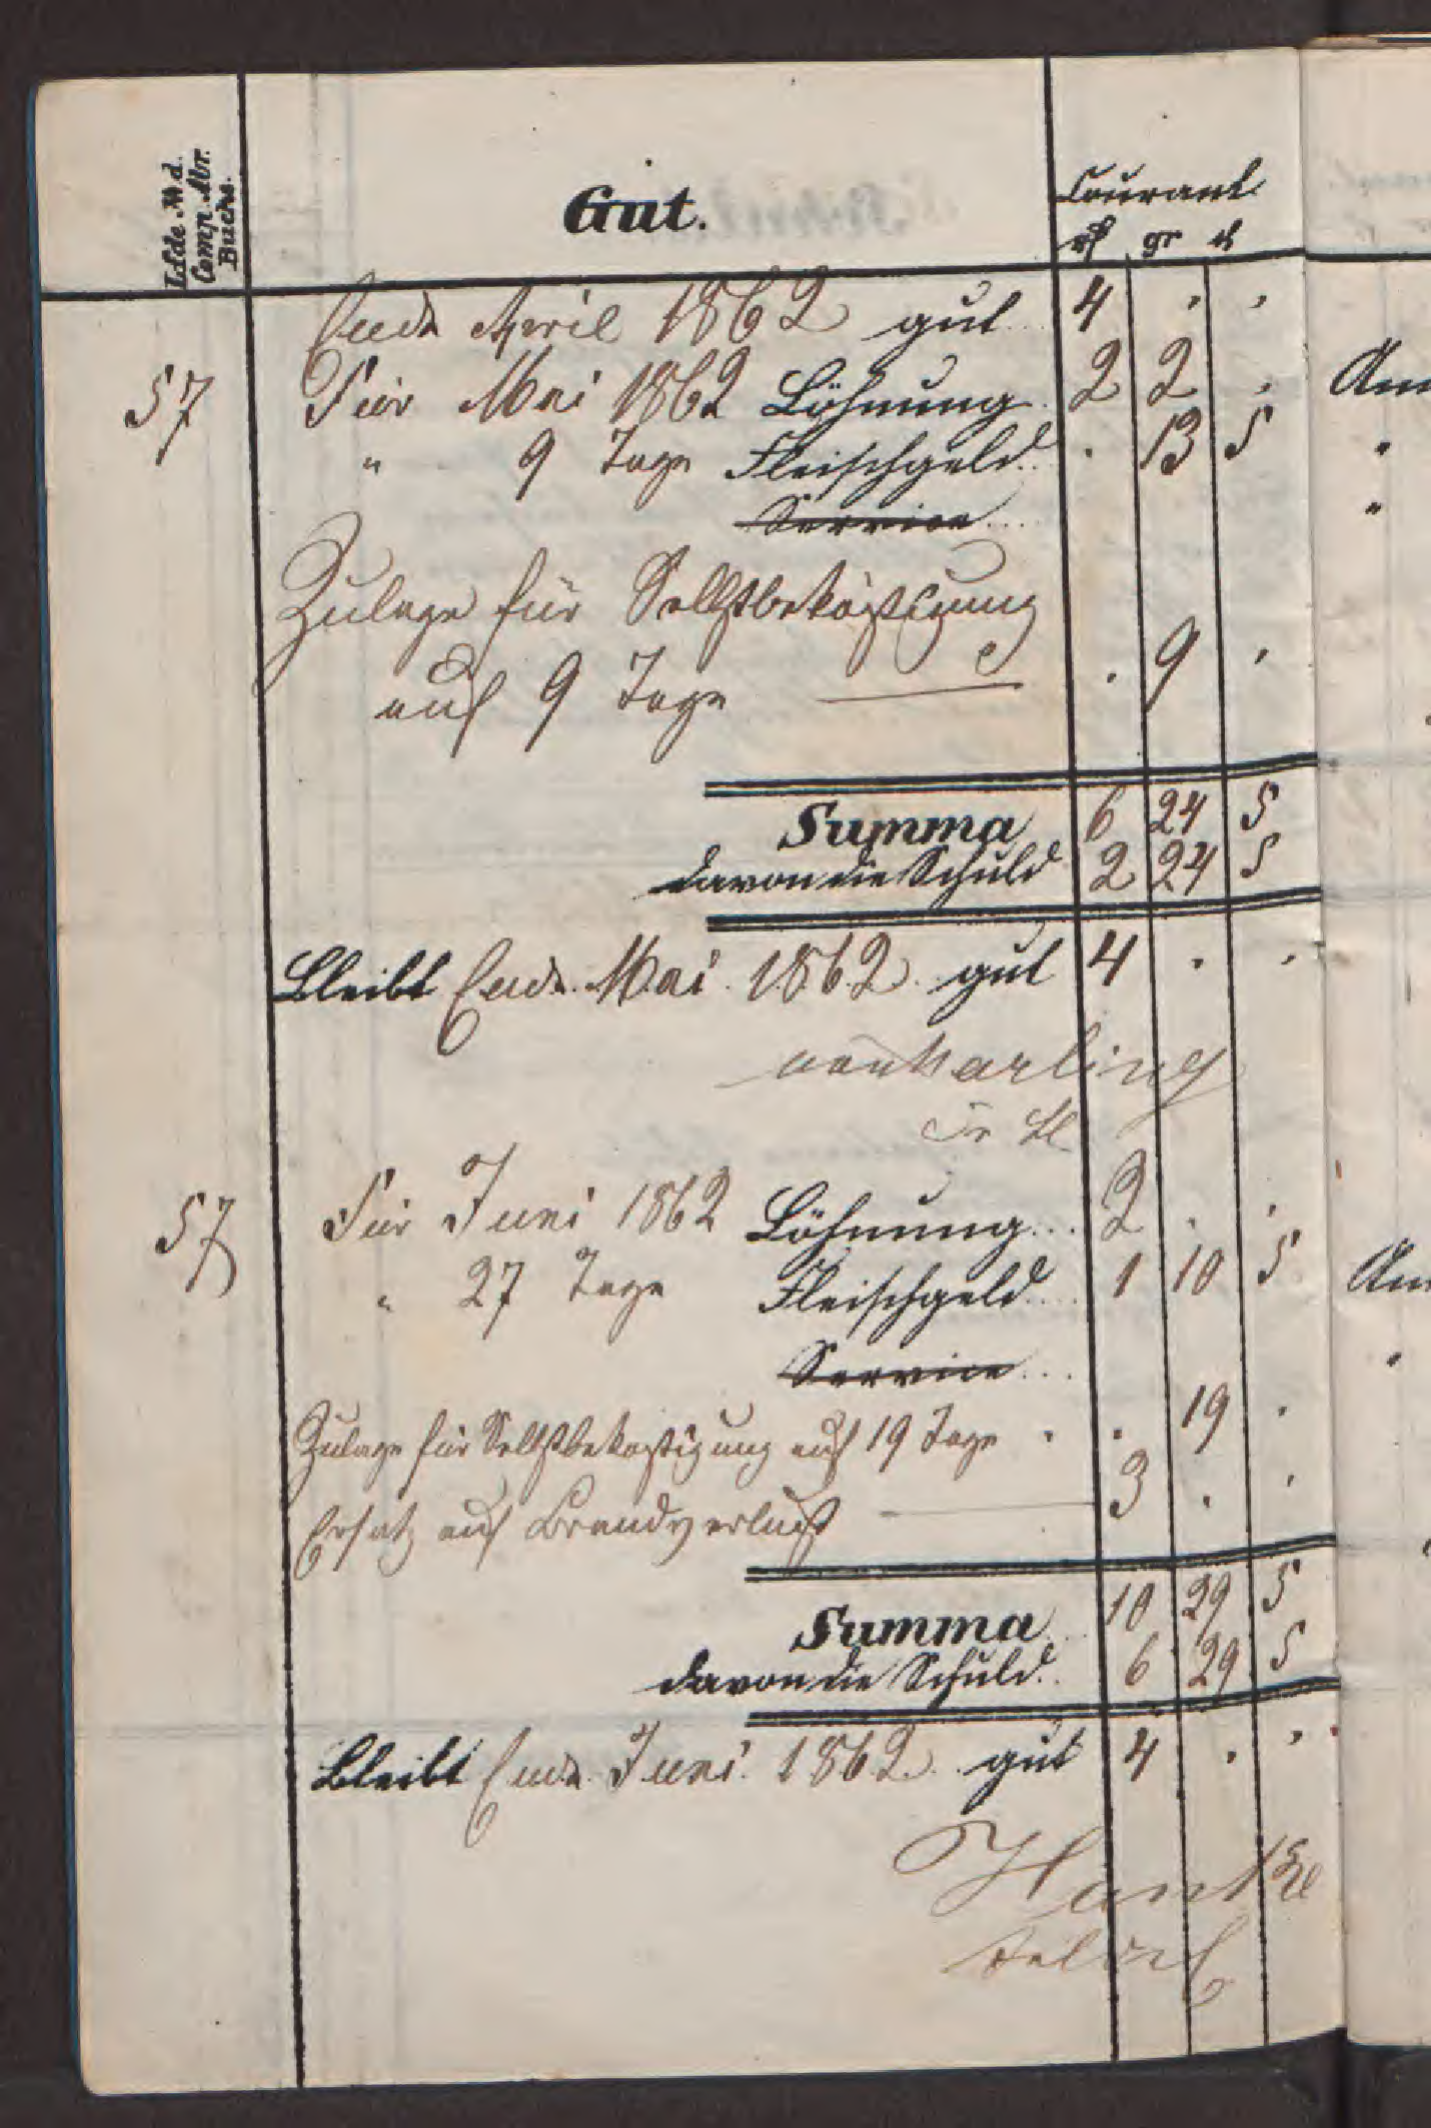 Lfde No d.
Comp. Abr.
Buchs.
Gut.
Courant
rf gr d
Ende April 1862 gut 4 . .
57 Für Mai 1862 Löhnung 2 2 .
" 9 Tage Fleischgeld . 13 5
Service
Zulage für Selbstbeköstigung
auf 9 Tage — . 9 .
Summa 6 24 5
davon die Schuld 2 24 5
Bleibt Ende Mai 1862 gut 4 . .
von Harling
Pr Lt
57 Für Juni 1862 Löhnung 2 . .
" 27 Tage Fleischgeld 1 10 5
Service
Zulage für Selbstbekostigung auf 19 Tage . . 19 .
Ersatz auf Brandverlust — 3 . .
Summa 10 29 5
davon die Schuld 6 29 5
Bleibt Ende Juni 1862 gut 4 . .
Hantke
An
"
"
An
"